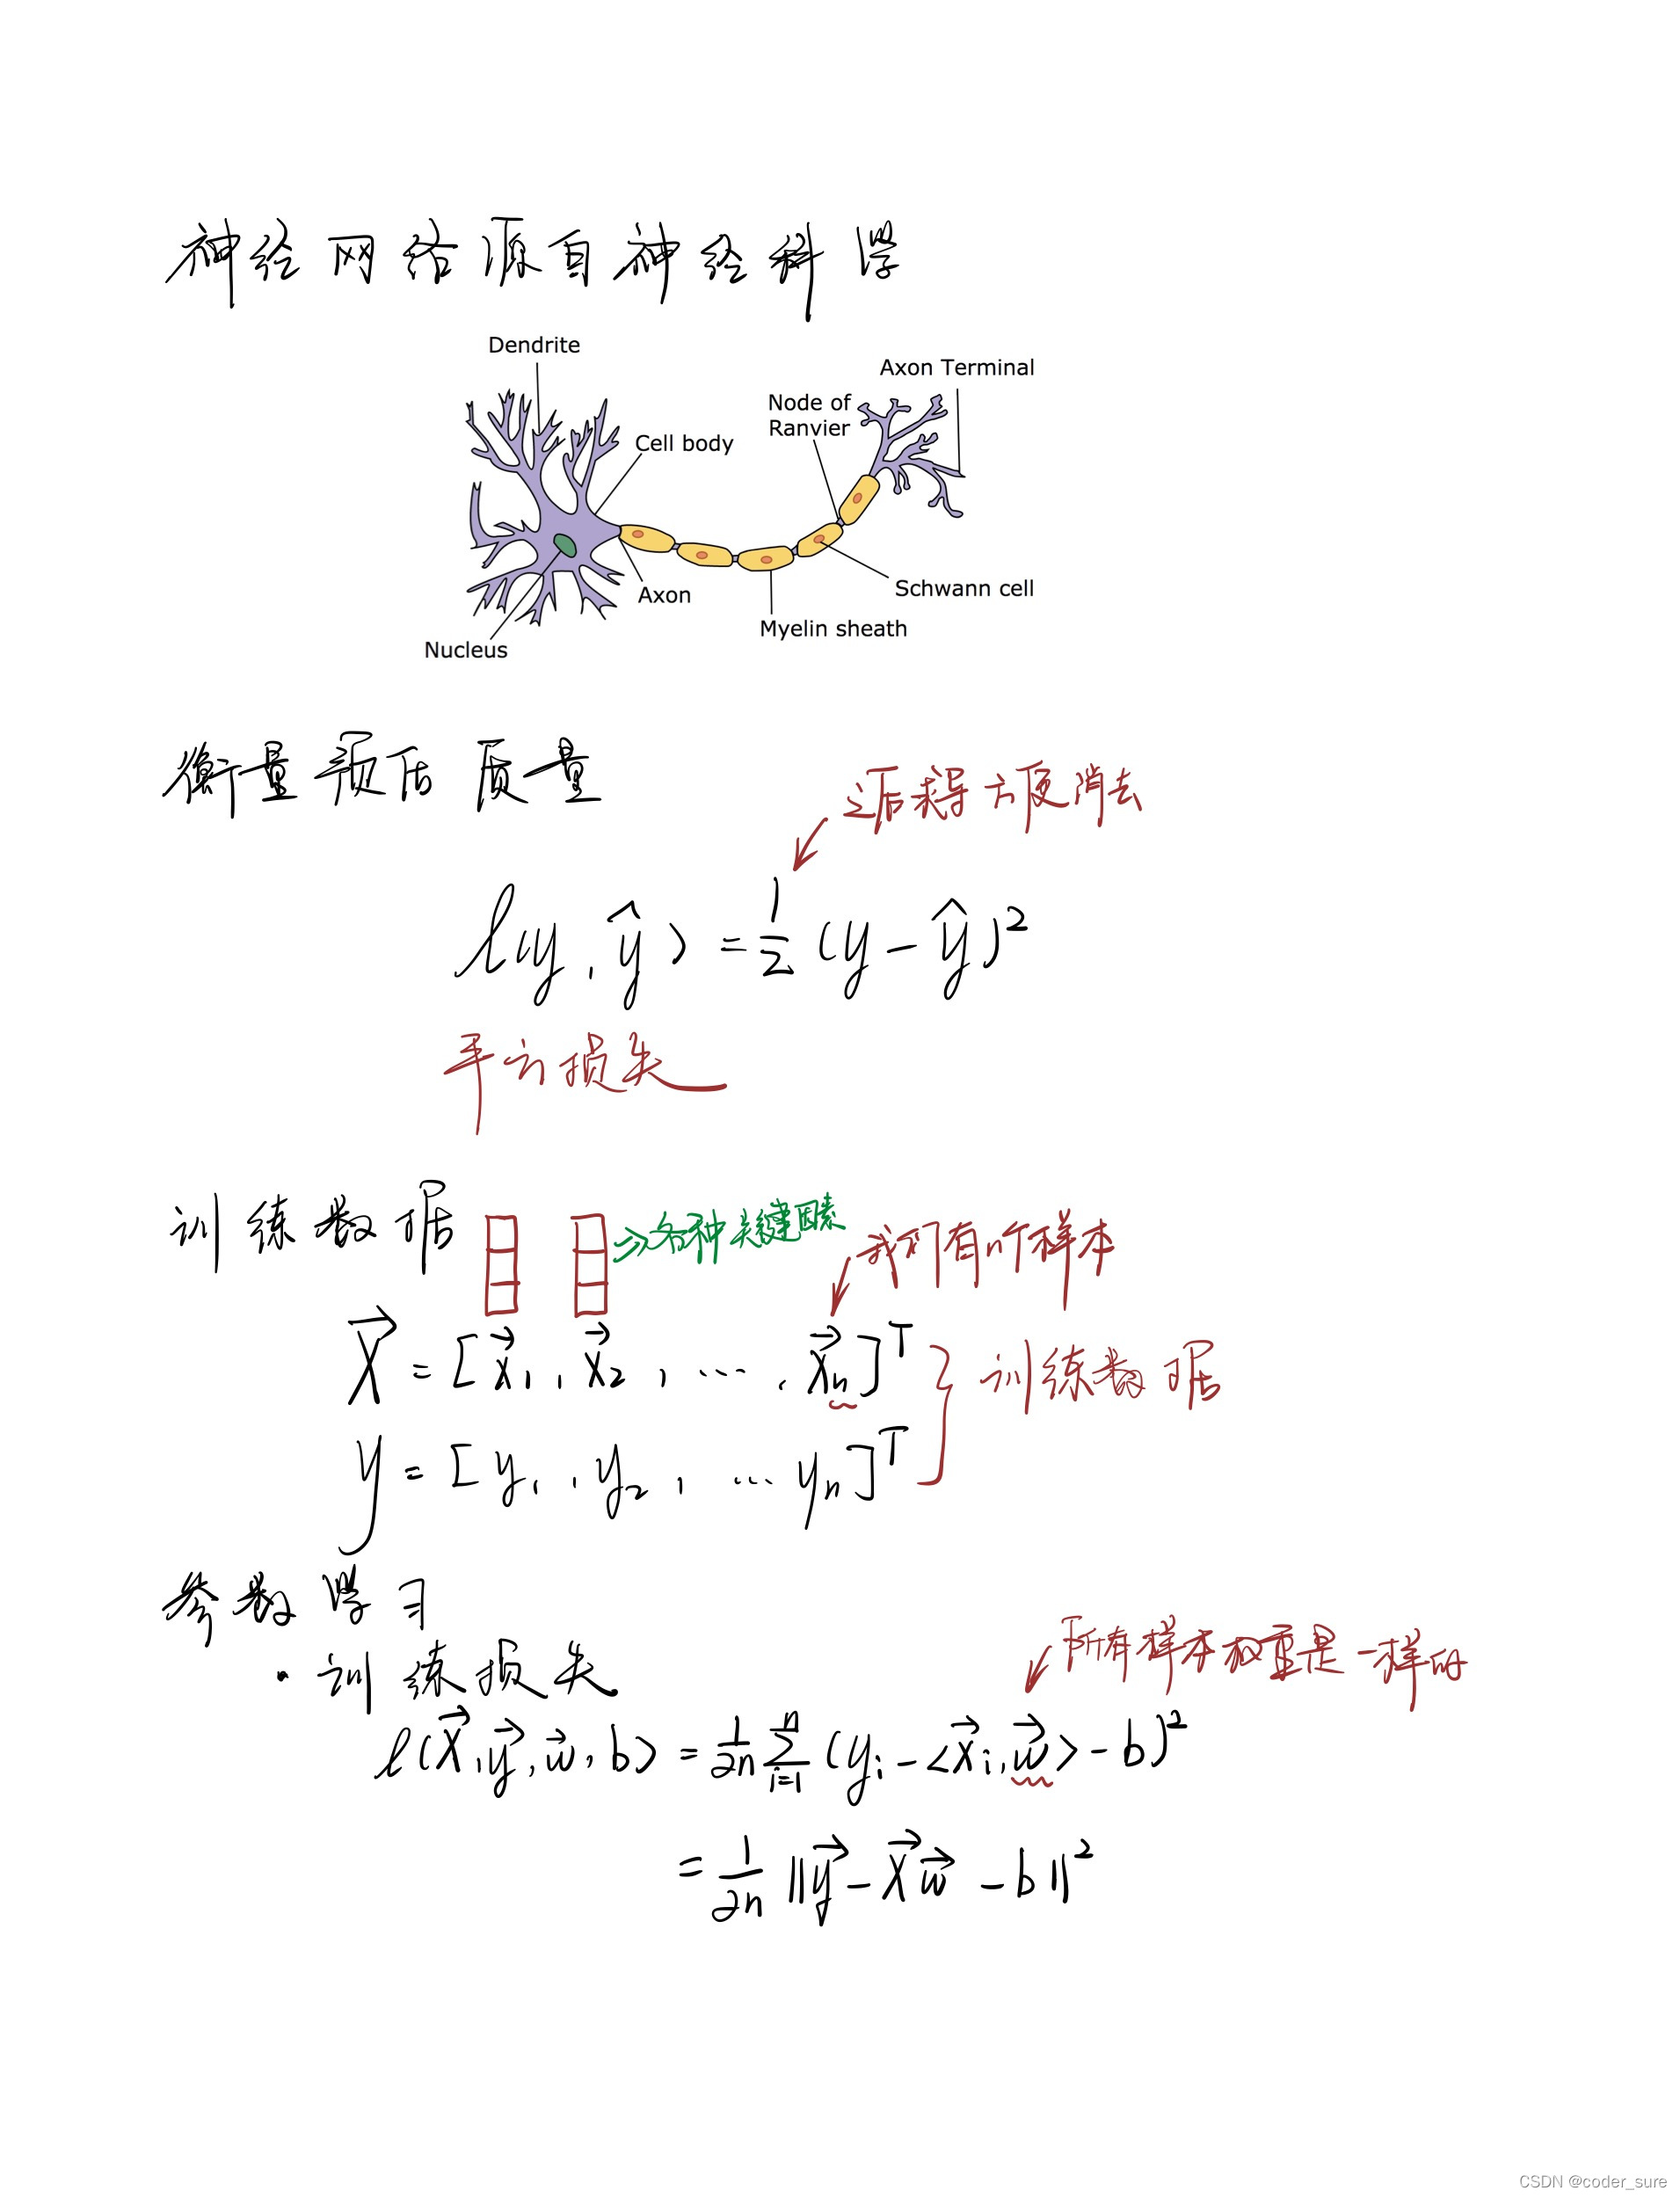 神经网络源自神经科学
Dendrite
Axon Terminal
Node of
Ranvier
Cell body
Schwann cell
Axon
Myelin sheath
Nucleus
衡量预估质量
之后求导方便消去
ℓ(y, ŷ) = 1/2 (y - ŷ)²
平方损失
训练数据
⇒各种关键因素
我们有n个样本
X⃗ = [x⃗₁, x⃗₂, ..., x⃗ₙ]ᵀ
训练数据
y = [y₁, y₂, ... yₙ]ᵀ
参数学习
· 训练损失
所有样本权重是一样的
ℓ(X⃗, y⃗, w⃗, b) = 1/2n ∑ⁿᵢ₌₁ (yᵢ - <x⃗ᵢ, w⃗> - b)²
= 1/2n ||y⃗ - X⃗w⃗ - b||²
CSDN @coder_sure